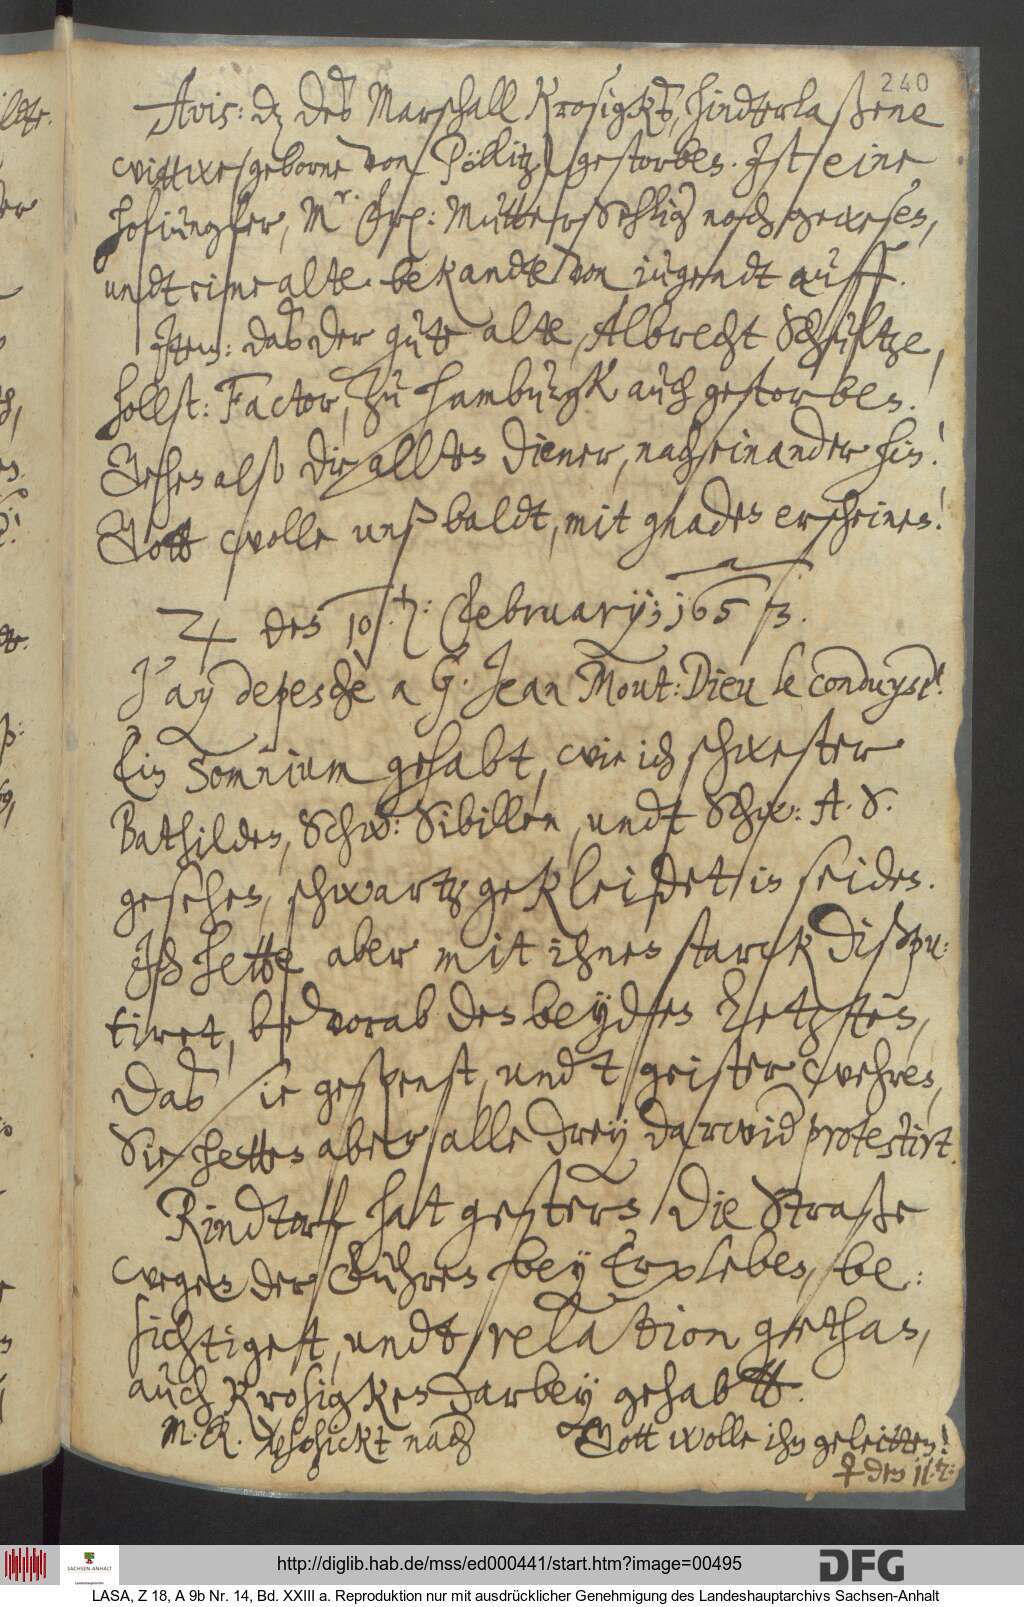 240
Avis: dz des Marschall Krosigks, hinderlaßene
wittwe (geborne von Pöllitz) gestorben. Ist eine
hofjungfer, Mr. Gn: Mutter Sehlig noch gewesen,
undt eine alte bekandte von jugendt auff.
Item: daß der gute alte, Albrecht Schultze,
hollst: Factor, zu Hamburgk auch gestorben.
Gehen also die allten diener, nacheinander hin!
Gott wolle unß baldt, mit gnaden erscheinen!
♃ den 10. Februarij; 1653.
J'ay depesché a G. Jean Mout: Dieu le conduyse!
Ein Somnium gehabt, wie ich schwester
Bathilden, Schw: Sibillen, undt Schw: A. S.
gesehen, schwartz gekleidet in seiden.
Ich hette aber mit ihnen starck dißpu:
tiret, bevorab den beyden letzsten,
Daß sie gespenst, undt geister wehren,
Sie hetten aber alle drey darwid protestirt.
Rindtorf hat gestern die Straße
wegen der Fuhren bey Erxleben, be:
sichtiget, undt relation gethan,
auch Krosigken darbey gehabtt.
M. R. geschickt nach Gott wolle ihn geleitten!
♀ den 11.
http://diglib.hab.de/mss/ed000441/start.htm?image=00495
SACHSEN-ANHALT
DFG
LASA, Z 18, A 9b Nr. 14, Bd. XXIII a. Reproduktion nur mit ausdrücklicher Genehmigung des Landeshauptarchivs Sachsen-Anhalt